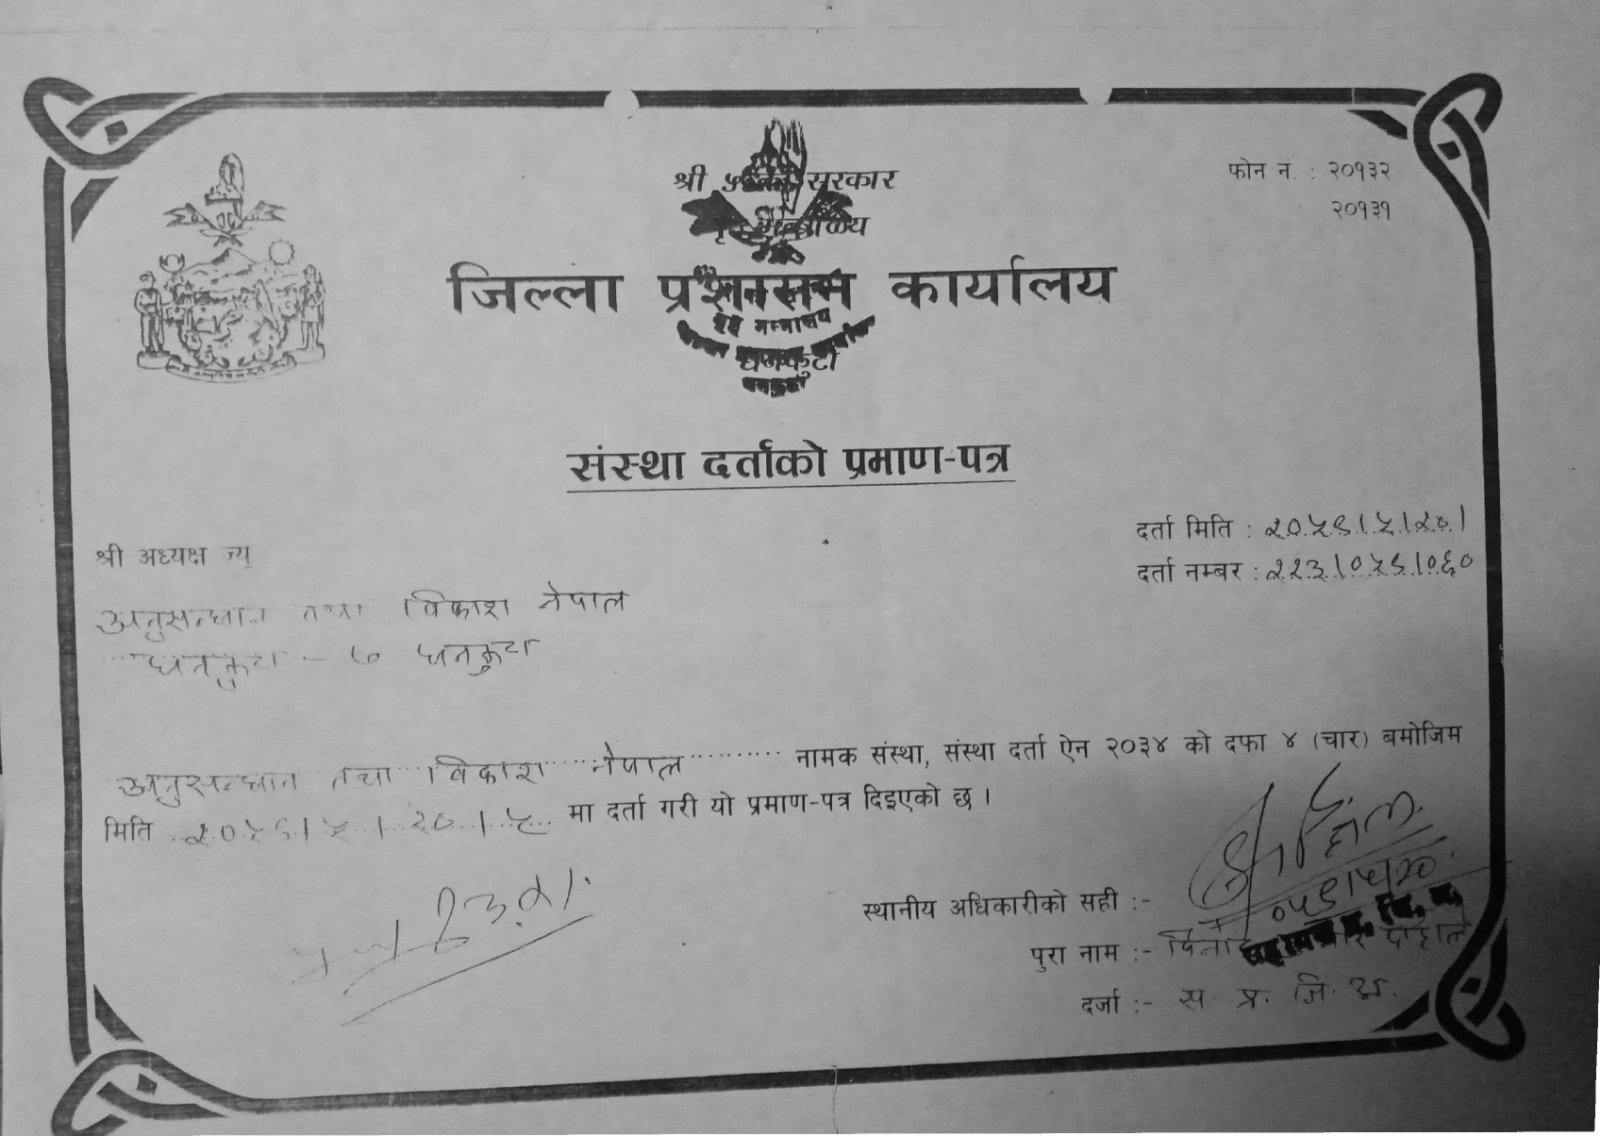 फोन नं. : २०१३२
२०१३१
श्री ५ को सरकार
गृह मन्त्रालय
जिल्ला प्रशासन कार्यालय
धनकुटा
संस्था दर्ताको प्रमाण-पत्र
दर्ता मिति : २०५९।५।२०।
दर्ता नम्बर : २२३।०५९।०६०
श्री अध्यक्ष ज्यू
अनुसन्धान तथा विकाश नेपाल
धनकुटा - ७ धनकुटा
अनुसन्धान तथा विकाश नेपाल नामक संस्था, संस्था दर्ता ऐन २०३४ को दफा ४ (चार) बमोजिम
मिति २०५९।५।२०।५ मा दर्ता गरी यो प्रमाण-पत्र दिइएको छ ।
स्थानीय अधिकारीको सही :-
०५९।५।२०
पुरा नाम :- दाहाल
दर्जा :- स. प्र. जि. अ.